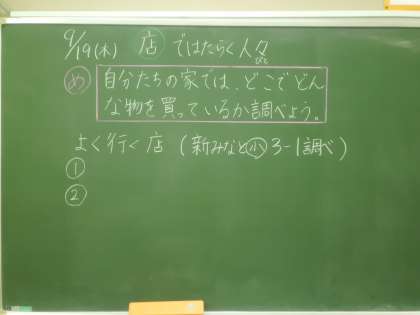 9/19(木) 店ではたらく人々
びと
め 自分たちの家では、どこでどん
な物を買っているか調べよう。
よく行く店(新みなと小3-1調べ)
①
②